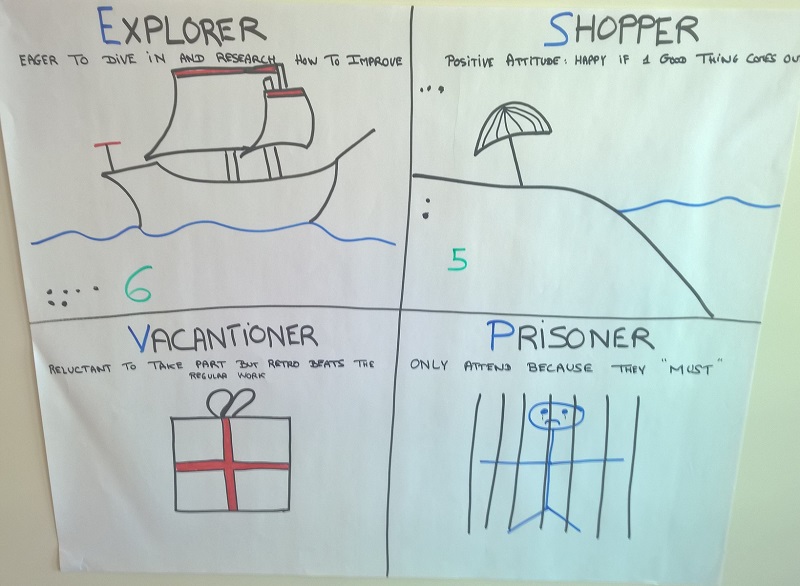 EXPLORER
EAGER TO DIVE IN AND RESEARCH HOW TO IMPROVE
6
SHOPPER
POSITIVE ATTITUDE: HAPPY IF 1 GOOD THING COMES OU
5
VACANTIONER
RELUCTANT TO TAKE PART BUT RETRO BEATS THE
REGULAR WORK
PRISONER
ONLY ATTEND BECAUSE THEY "MUST"